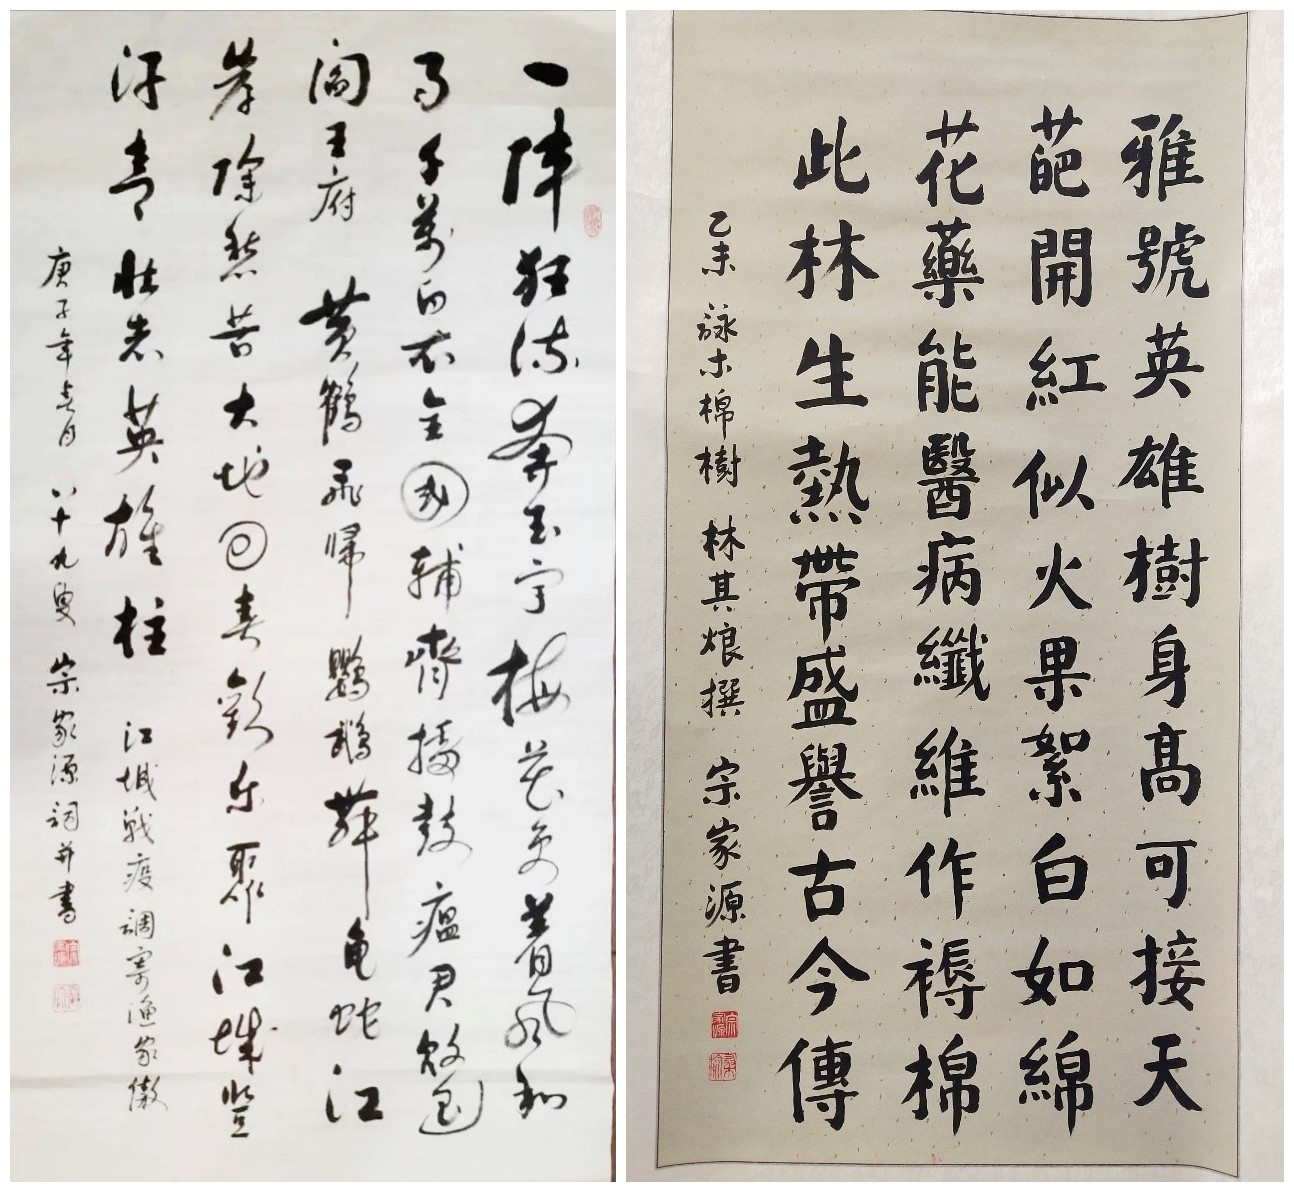 一陣狂流奔玉宇梅花更着風和
雨千萬白衣全國輔齊擂鼓瘟君敗逃
閻王府 黄鶴飛歸鸚鵡舞龜蛇江
岸除愁苦大地回春歡樂聚江城豎
汗青壯志英雄柱
江城戰疫調寄漁家傲
庚子年春月 八十九叟 宗家源詞并書
雅號英雄樹身高可接天
葩開紅似火果絮白如綿
花藥能醫病纖維作褥棉
此林生熱帶盛譽古今傳
乙未 詠木棉樹 林其烺撰 宗家源書